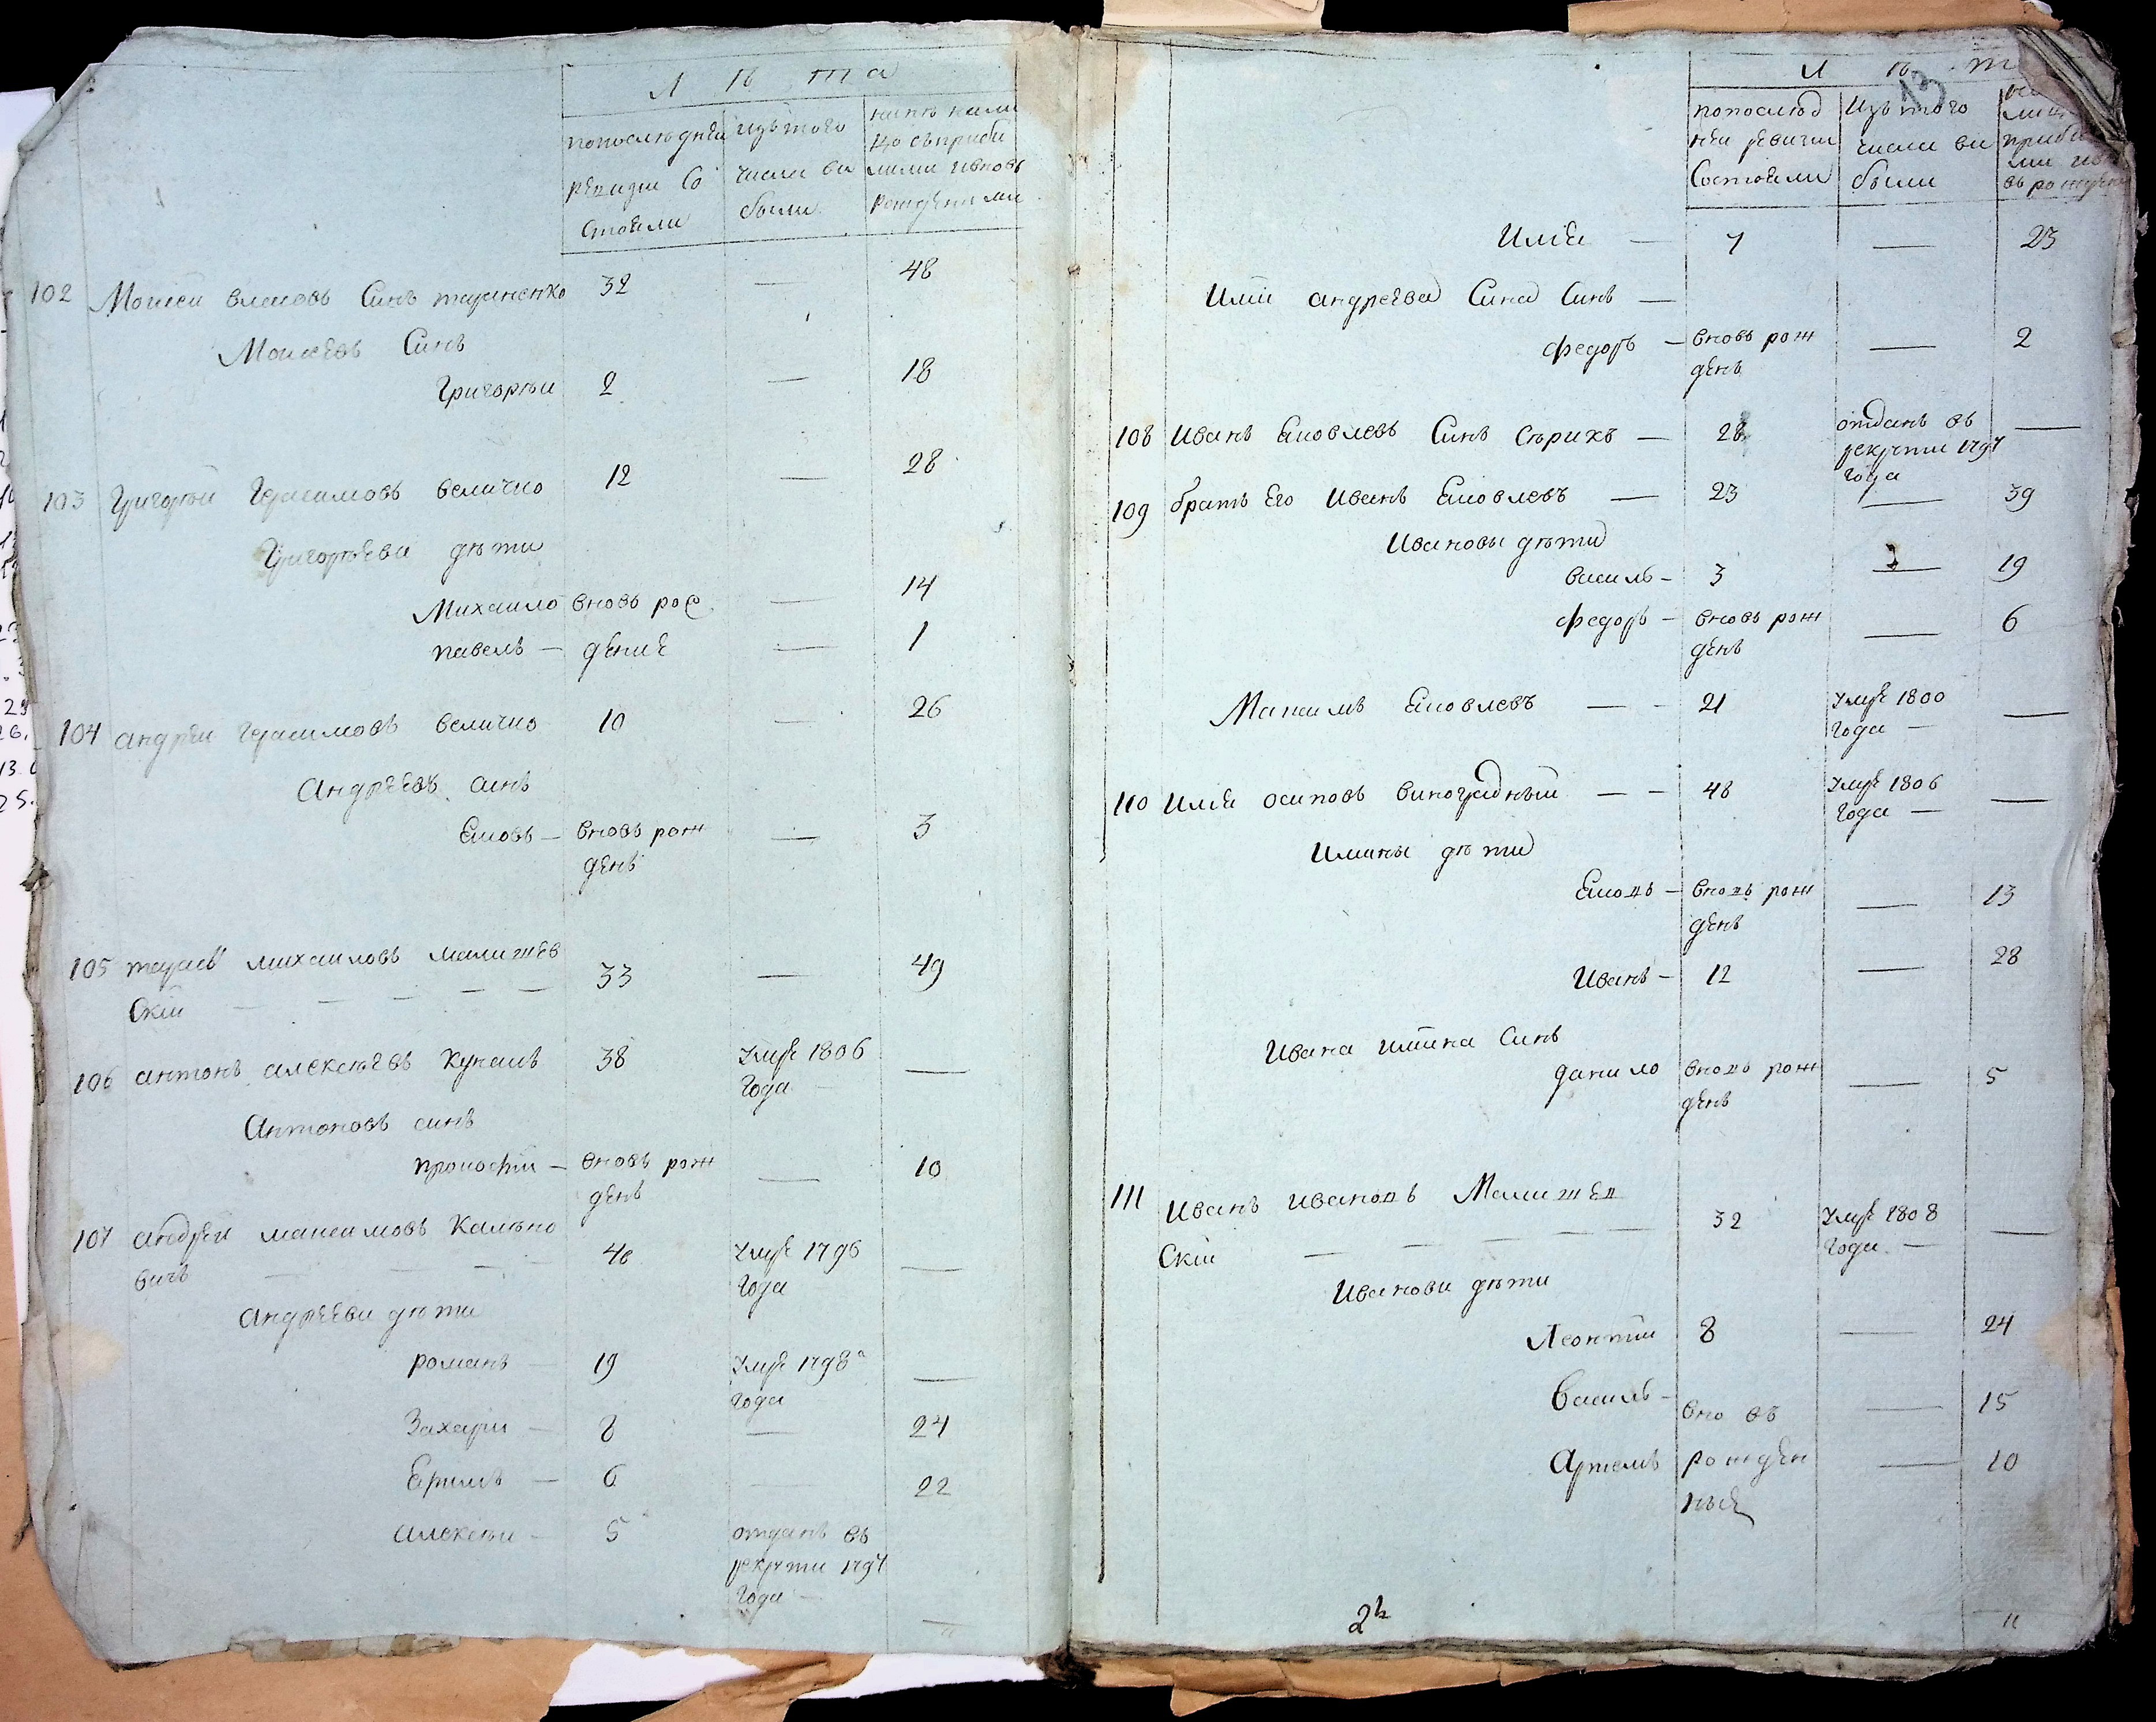 Лѣта
попослѣдней ревизии состояли
изътого числа выбыли
102 Моисей Власовъ Синъ 32 — 48
Моисеевъ Синъ
Григорѣи 2 — 18
103 Григорѣй Герасимовъ величко 12 — 28
Григорѣеви дѣти
Михаило вновь рож — 14
павелъ — дение — 1
104 андрей Герасимовъ величко 10 — 26
Андреевъ синъ
Яковъ — вновь рож — 3
денъ
105 тарасъ михаиловъ малишев 49
скій — 33 —
106 антонъ алексѣевъ 38 умре 1806 —
года —
Антоновъ синъ
прокофій — вновь рож — 10
денъ
107 андрей максимовъ Калѣно
вичъ — умре 1796 —
года
андрееви дѣти
романъ — 19 умре 1798 —
года
Захарий — 8 — 24
6 — 22
алексѣи — 5 отданъ въ
рекрути 1797
года —
Лѣт
попослѣд
ней ревизии
состояли
изъ того
числа вы
были
Илія — 7 — 23
Иліи андреева Сина Синъ —
федоръ — вновь рож — 2
денъ
108 Иванъ Яковлевъ Синъ Сѣрикъ — 28 отданъ въ —
рекрути 1797
года
109 братъ Его Иванъ Яковлевъ — 23 — 39
Ивановы дѣти
василь — 3 — 19
федоръ — вновь рож — 6
денъ
Максимъ Яковлевъ — — 21 умре 1800 —
года —
110 Илія осиповъ виноградный — — 48 умре 1806 —
года —
Илины дѣти
Яковъ — вновь рож — 13
денъ
Иванъ — 12 — 28
Ивана илиина Синъ
данило вновь рож — 5
денъ
111 Иванъ ивановъ Малишев
скій — — — — 32 умре 1808 —
года —
Иванови дѣти
Леонтій 8 — 24
Василь — вно въ — 15
Артемъ рожден — 10
ные